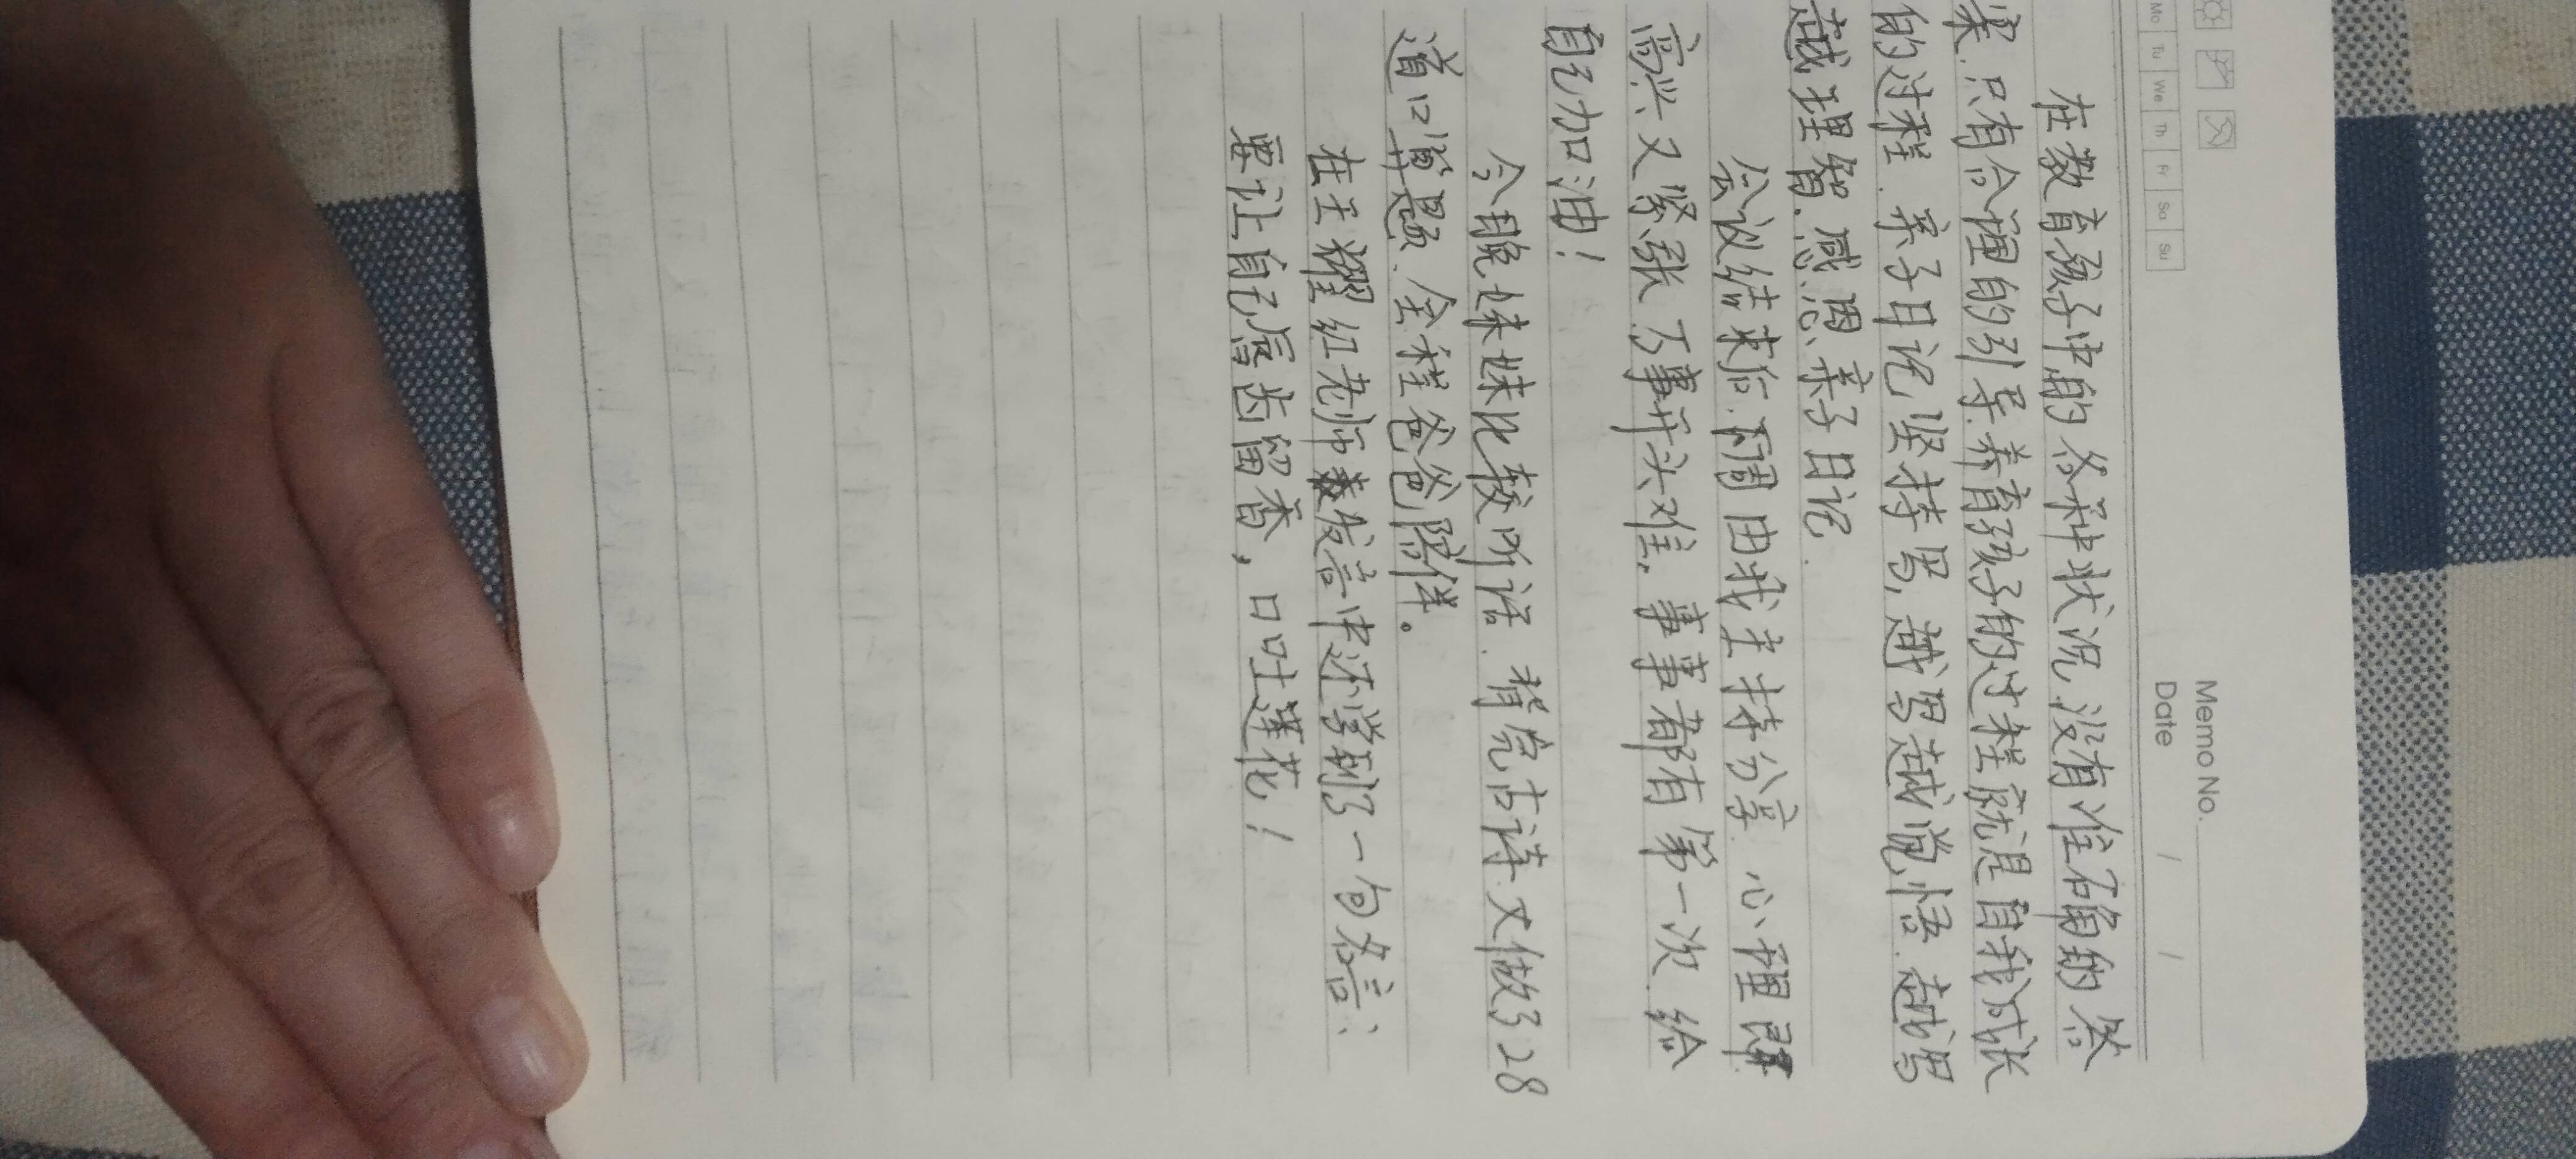 Memo No.
Mo Tu We Th Fr Sa Su
Date / /
在教育孩子中的各种状况.没有准确的答
案.只有合理的引导.养育孩子的过程就是自我成长
的过程.亲子日记坚持写,越写越觉悟.越写
越理智.感恩.亲子日记.
会议结束后.下周由我主持分享.心理既
高兴又紧张.万事开头难.事事都有第一次.给
自己加油!
今晚妹妹比较听话.背完古诗文做了28
道口算题.全程爸爸陪伴。
在王耀红老师发言中还学到了一句名言:
要让自己唇齿留香,口吐莲花!